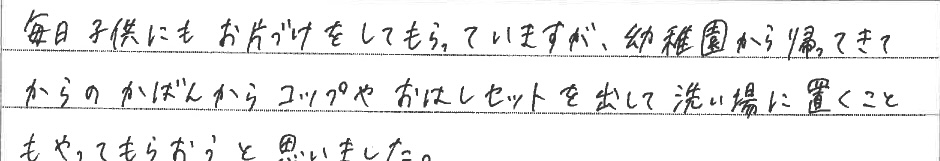 毎日子供にもお片づけをしてもらっていますが、幼稚園から帰ってきて
からのかばんからコップやおはしセットを出して洗い場に置くこと
もやってもらおうと思いました。